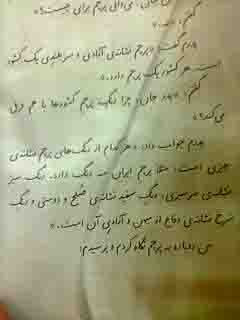 جان، می‌دانی پرچم برای چیست؟»
گفتم: «نه.»
پدرم گفت: «پرچم نشانه‌ی آزادی و سربلندی یک کشور
است. هر کشور یک پرچم دارد.»
گفتم: «پدر جان، چرا رنگ پرچم کشورها با هم فرق
می‌کند؟»
پدرم جواب داد: «هر کدام از رنگ‌های پرچم نشانه‌ی
چیزی است. مثلا پرچم ایران سه رنگ دارد. رنگ سبز
نشانه‌ی سرسبزی، رنگ سفید نشانه‌ی صلح و دوستی و رنگ
سرخ نشانه‌ی دفاع از میهن و آزادی آن است.»
من دوباره به پرچم نگاه کردم و پرسیدم: